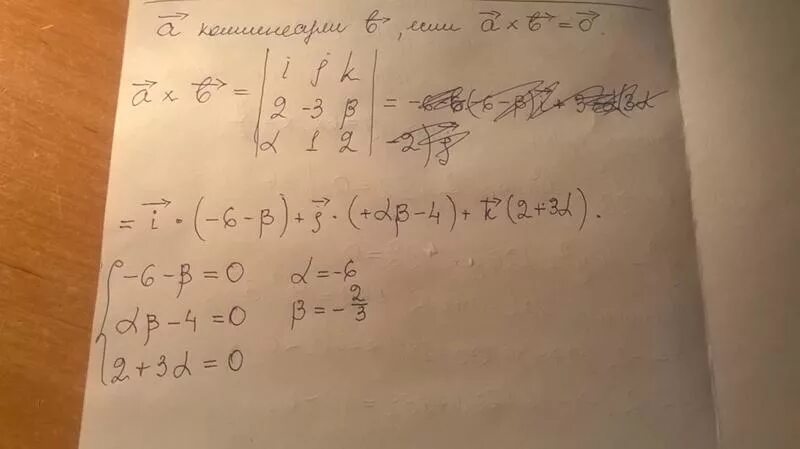 a⃗ коллинеарн b⃗, если a⃗ × b⃗ = 0⃗.
a⃗ × b⃗ = | i j k | =
| 2 -3 β |
| α 1 2 |
= i⃗ · (-6-β) + j⃗ · (+αβ-4) + k⃗ (2+3α).
{ -6-β=0 α=-6
αβ-4=0 β=-2/3
2+3α=0